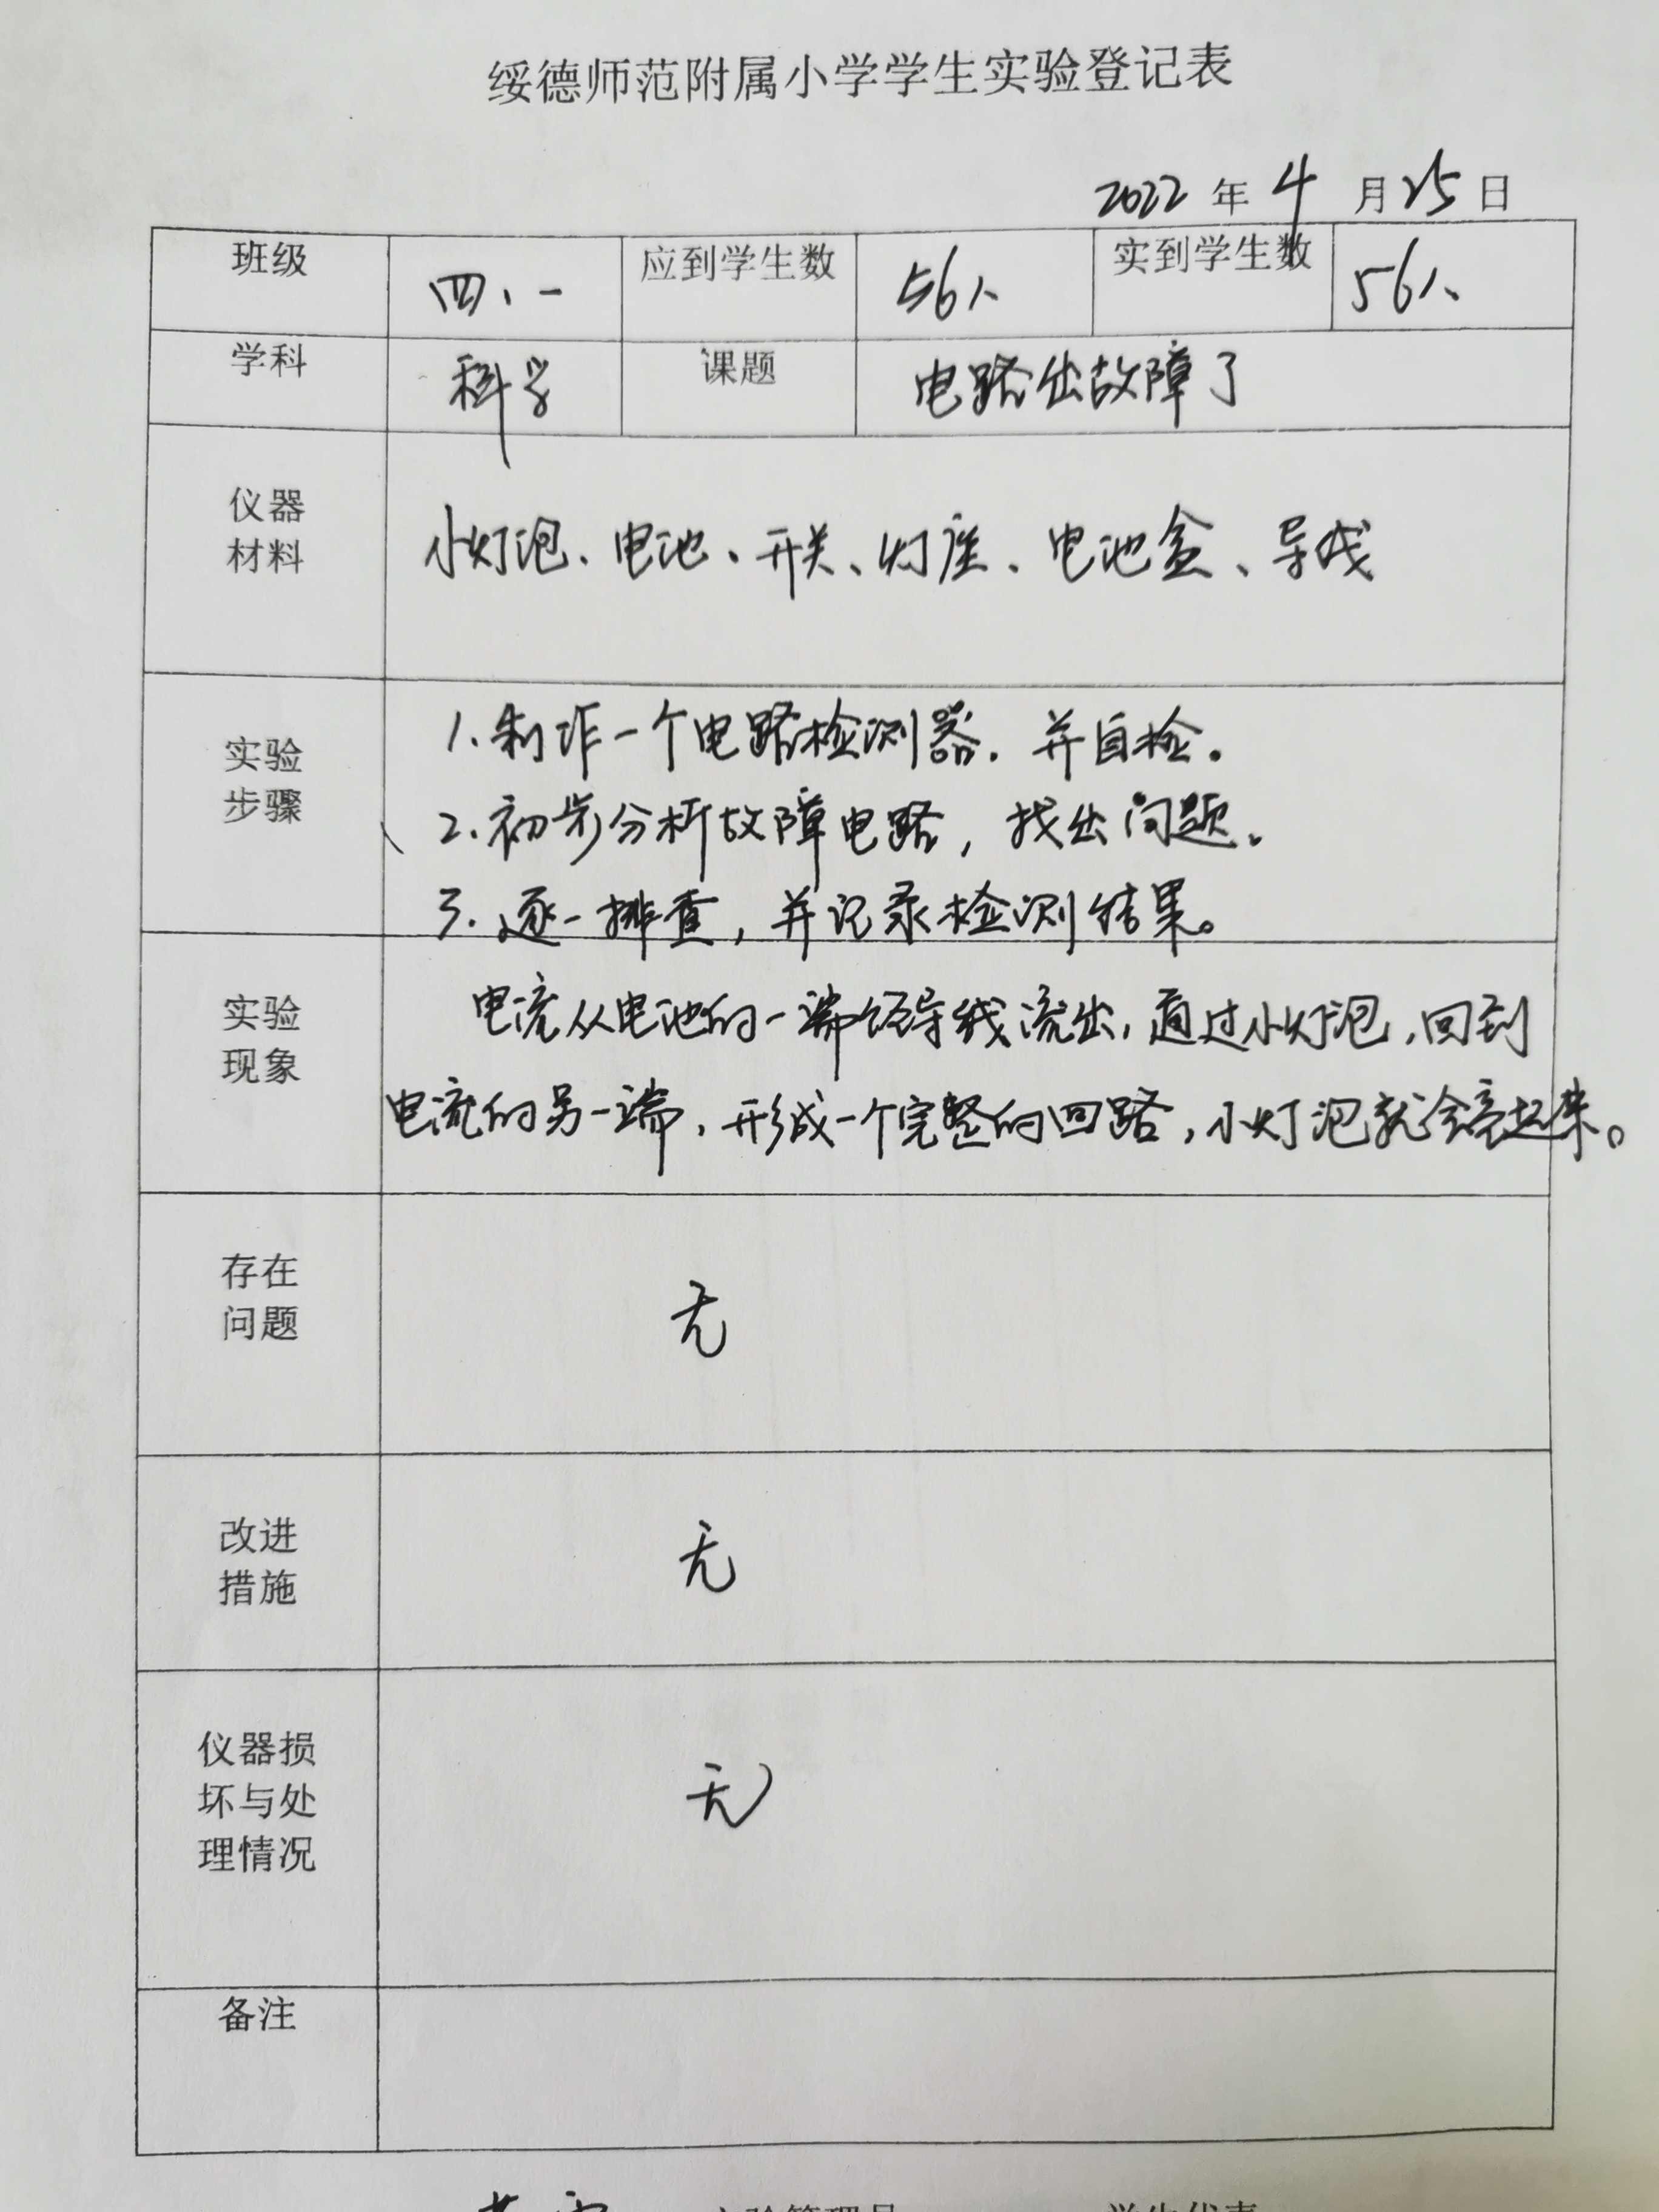 绥德师范附属小学学生实验登记表
2022 年 4 月 25 日
班级 四、一 应到学生数 56人 实到学生数 56人
学科 科学 课题 电路出故障了
仪器
材料
小灯泡、电池、开关、灯座、电池盒、导线
实验
步骤
1.制作一个电路检测器,并自检。
2.初步分析故障电路,找出问题。
3.逐一排查,并记录检测结果。
实验
现象
电流从电池的一端经导线流出,通过小灯泡,回到
电流的另一端,形成一个完整的回路,小灯泡就会亮起来。
存在
问题
无
改进
措施
无
仪器损
坏与处
理情况
无
备注